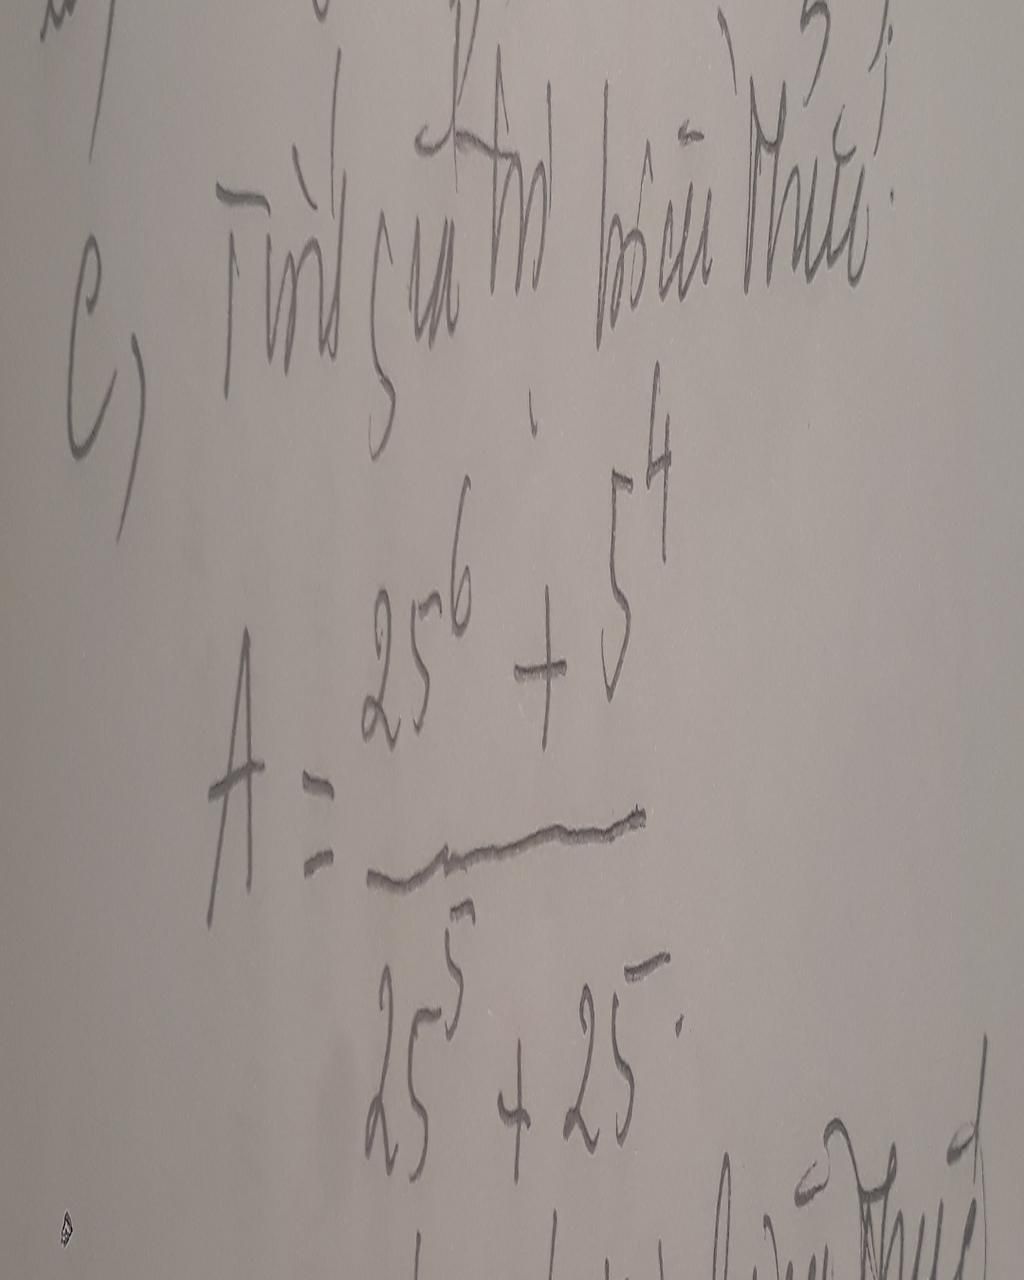 C, Tính giá trị biểu thức:
A = (25^6 + 5^4) / (25^5 + 25)
thức